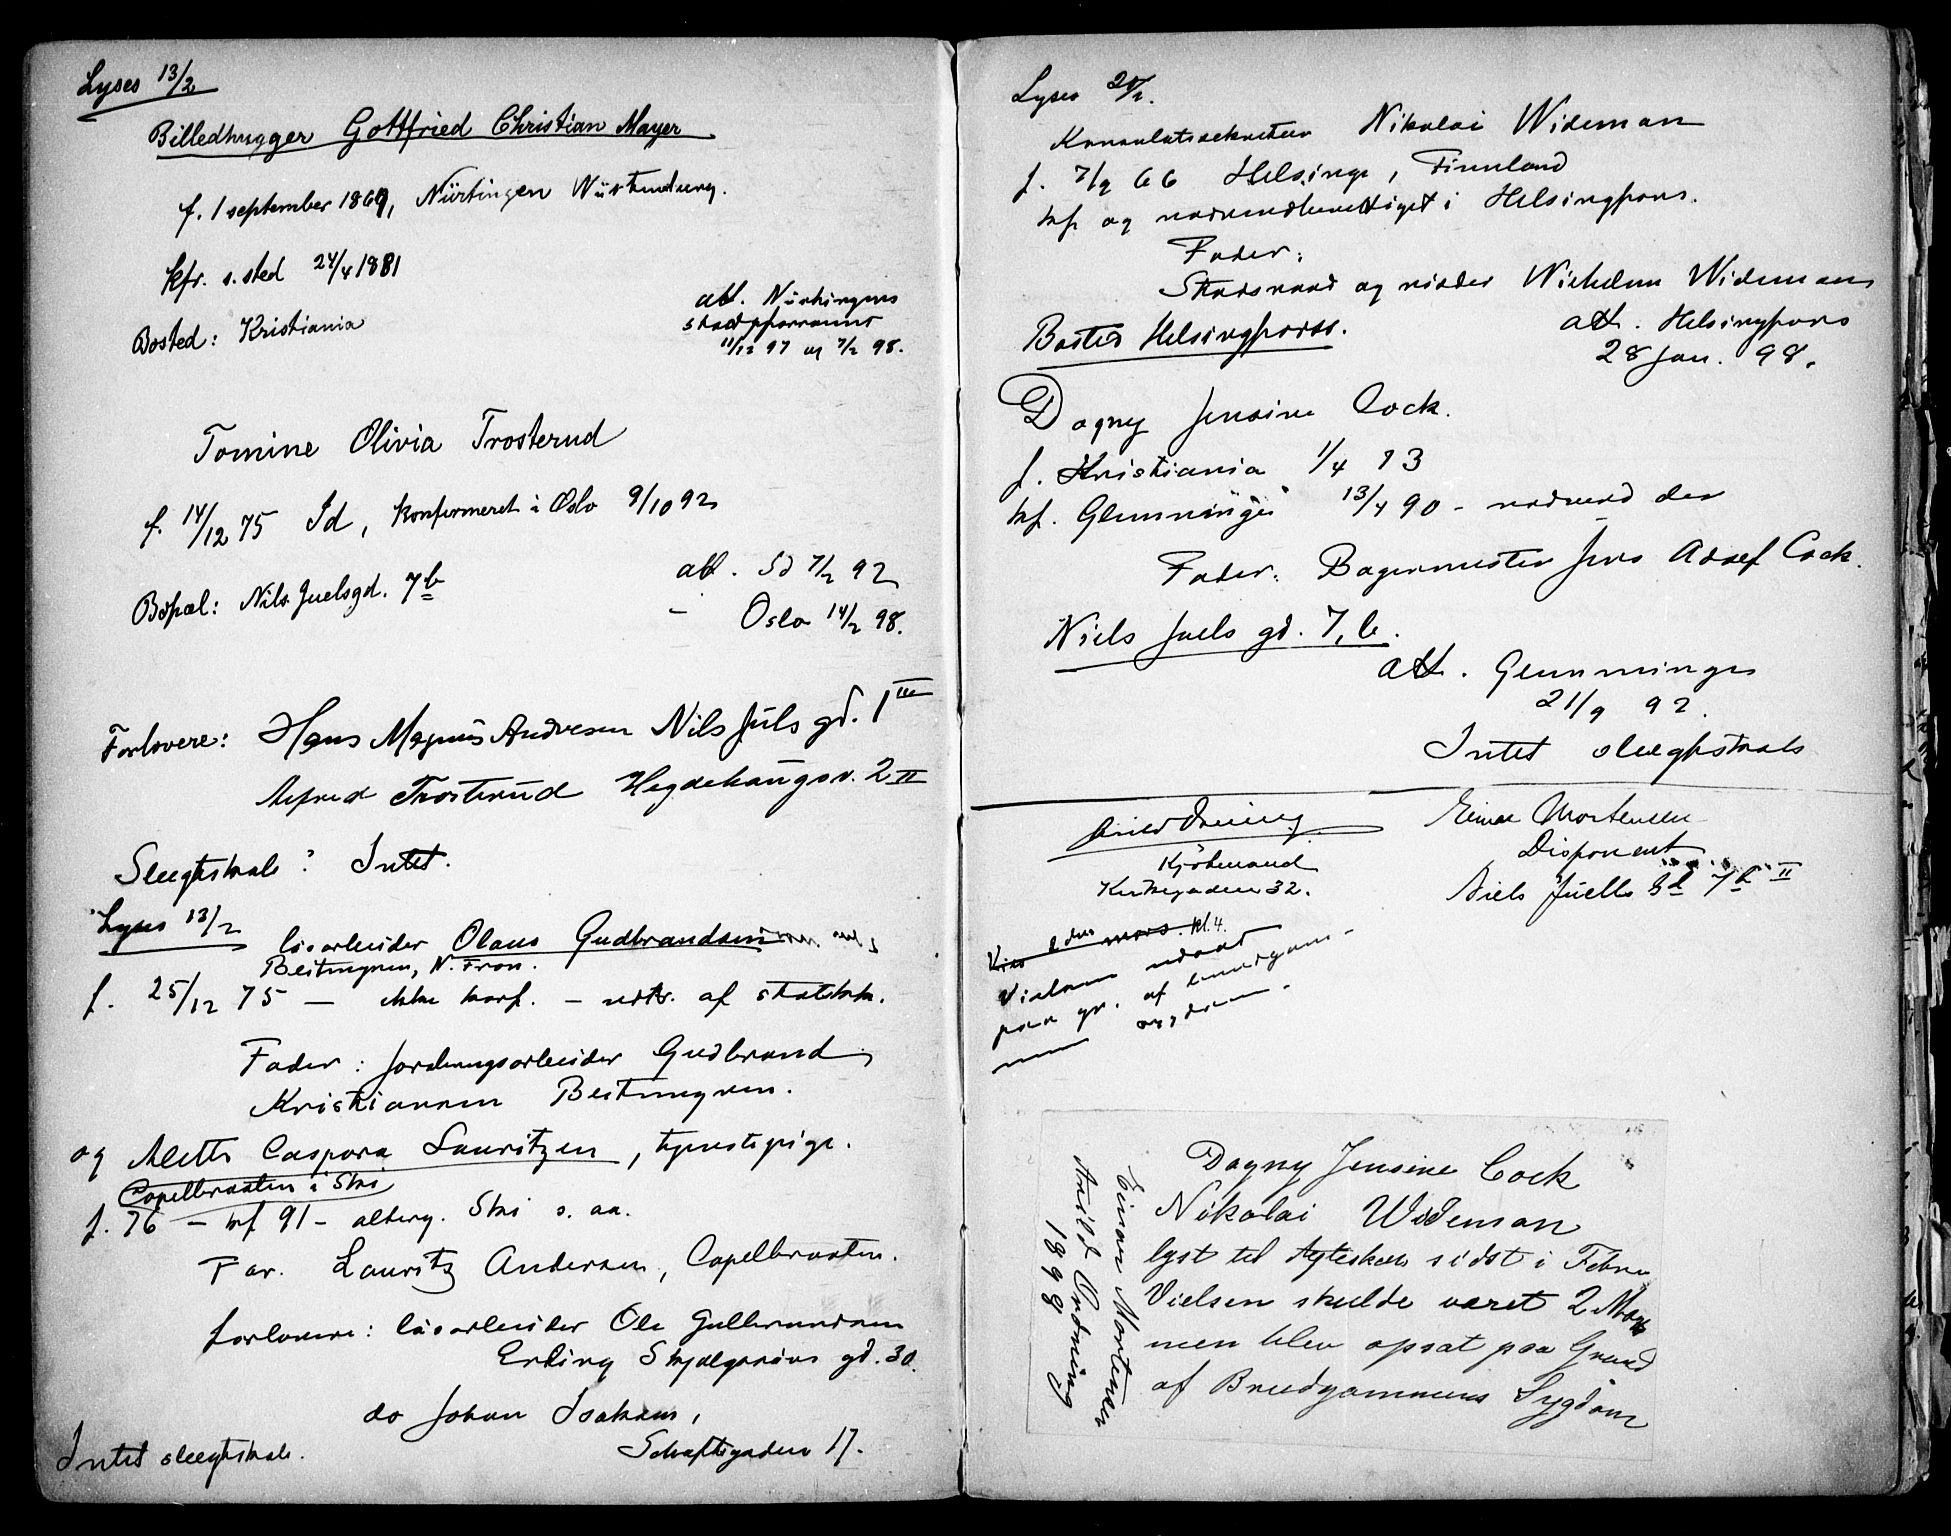 Lyses 13/2
Billedhugger Gottfried Christian Mayer
f. 1 september 1869, Nürtingen Würtemburg.
kfr. s. sted 24/4 1881
Bosted: Kristiania
att. Nürtingens
stadtpfarramt
11/12 97 og 7/2 98.
Tomine Olivia Trosterud
f. 14/12 75 Id, konfirmeret i Oslo 9/10 92
Bopæl: Nils Juelsgd. 7b
att. Id 7/2 92
- Oslo 14/2 98.
Forlovere: Hans Magnus Andresen Nils Juls gd. 1 III
Alfred Trosterud Hegdehaugsv. 2 II
Slegtskab? Intet.
Lyses 13/2
løsarbeider Olaus Gudbrandsen
N. Fron.
f. 25/12 75 — ikke konf. — udtr. af statskk.
Fader: jordbrugsarbeider Gudbrand
Kristiansen
og Mette Caspara Lauritzen, tjenestepige.
Capellbraaten i Ski
f. 76 - kf 91 - alterg. Ski s. aa.
Far. Lauritz Andersen, Capelbraaten.
forlovere: løsarbeider Ole Gulbrandsen
Erling Skjalgsøns gd. 30.
do Johan Isaksen,
Schaftsgaden 17.
Intet slegtskab.
Lyses
Konsulatssekretær Nikolai Wideman
f. 7/9 66 Helsinge, Finnland
kf. og nadverdberettiget i Helsingfors.
Fader:
Statsraad og ridder Wilhelm Wideman
Bosted Helsingforss.
att. Helsingfors
28 jan. 98.
Dagny Jensine Cock.
f. Kristiania 1/4 73
kf. Glemminge 13/4 90 - nadverd der
Fader: Bagermester Jens Adolf Cock.
Niels Juels gd. 7, b.
att. Glemminge
21/9 92.
Intet slegtskab
Arild Ordning
Kjøbmand
Kirkegaden 32.
Einar Mortensen
Disponent
Niels Juells gd 7b II
mars. kl. 4.
Vielsen udsat
paa gr. af brudgom-
mens sygdom.
Dagny Jensine Cock
Nikolai Wideman
lyst til Ægteskab sidst i Febru
Vielsen skulde været 2 Marts
men blev opsat paa Grund
af Brudgommens Sygdom
Einar Mortensen
Arild Ordning
1898